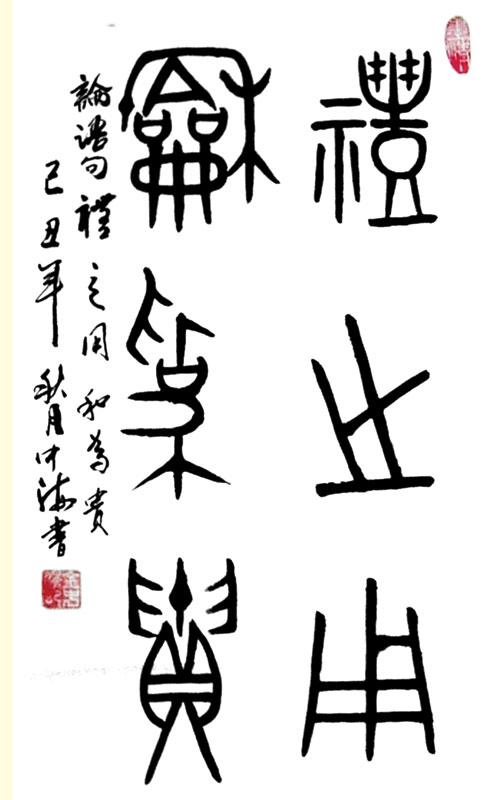 禮之用
龢為貴
論語句 禮之用 和為貴
己丑年 秋月 中海書